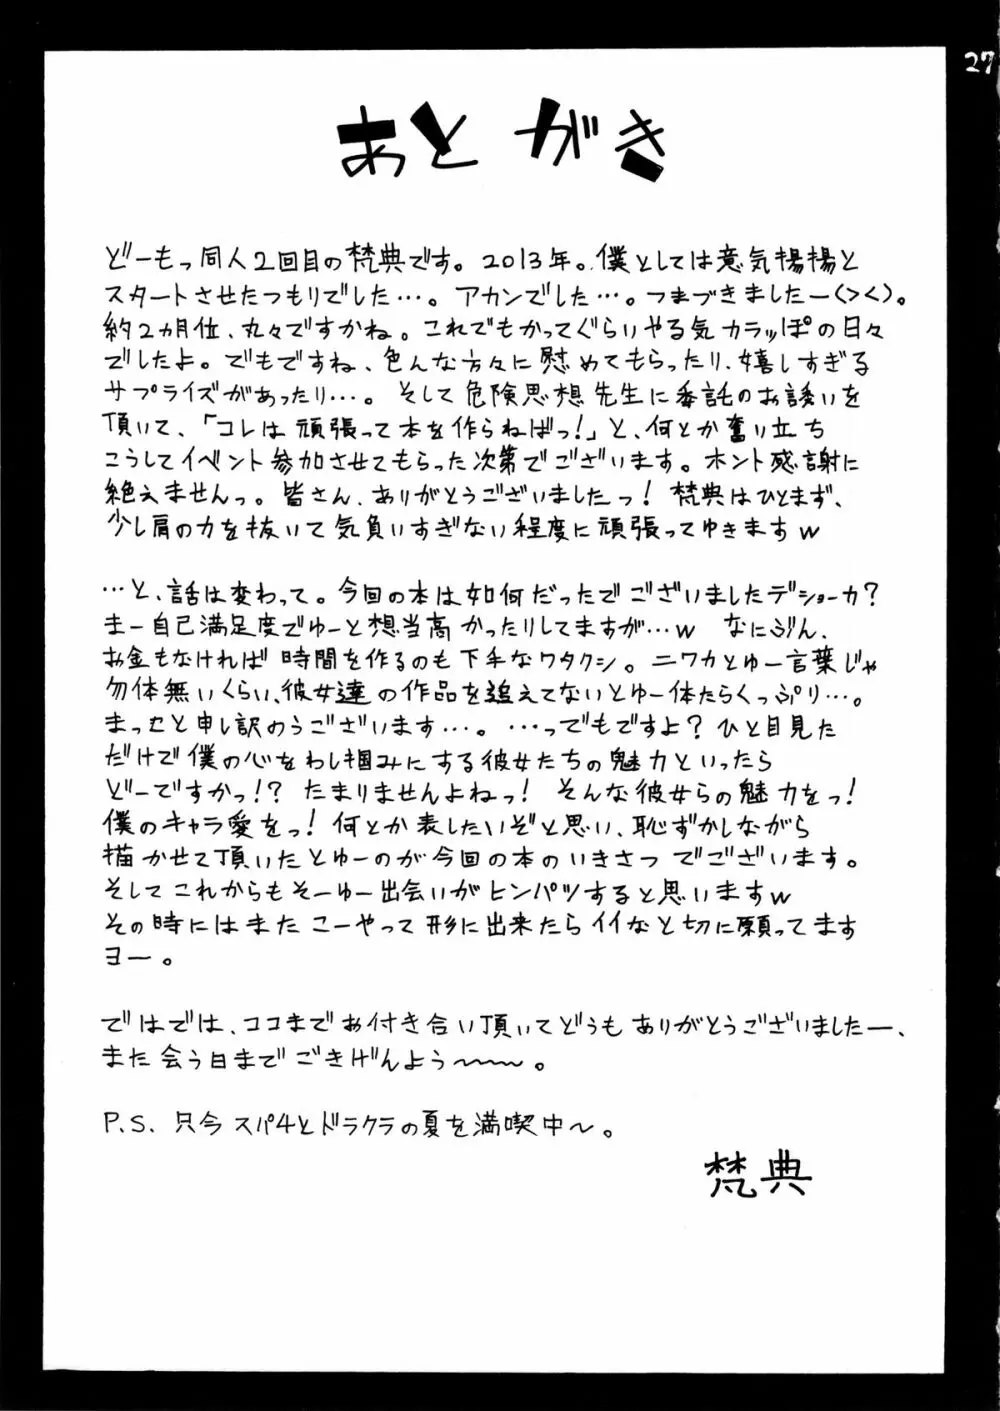 27
あとがき
どーもっ同人2回目の梵典です。2013年。僕としては意気揚揚と
スタートさせたつもりでした…。アカンでした…。つまづきましたー(>く)。
約2ヵ月位、丸々ですかね。これでもかってぐらいやる気カラッぽの日々
でしたよ。でもですね、色んな方々に慰めてもらったり、嬉しすぎる
サプライズがあったり…。そして危険思想先生に委託のお誘いを
頂いて、「コレは頑張って本を作らねばっ!」と、何とか奮い立ち
こうしてイベント参加させてもらった次第でございます。ホント感謝に
絶えませんっ。皆さん、ありがとうございましたっ!梵典はひとまず、
少し肩の力を抜いて気負いすぎない程度に頑張ってゆきますw
…と、話は変わって。今回の本は如何だったでございましたデショーカ?
まー自己満足度でゆーと想当高かったりしてますが…w なにぶん、
お金もなければ時間を作るのも下手なワタクシ。ニワカとゆー言葉じゃ
勿体無いくらい、彼女達の作品を追えてないとゆー体たらくっぷり…。
まっせと申し訳のうございます…。…ってでもですよ?ひと目見た
だけで僕の心をわし掴みにする彼女たちの魅力といったら
どーですかっ!?たまりませんよねっ!そんな彼女らの魅力をっ!
僕のキャラ愛をっ!何とか表したいぞと思い、恥ずかしながら
描かせて頂いたとゆーのが今回の本のいきさつでございます。
そしてこれからもそーゆー出会いがヒンパツすると思いますw
その時にはまたこーやって形に出来たらイイなと切に願ってます
ヨー。
ではでは、ココまでお付き合い頂いてどうもありがとうございましたー、
また会う日までごきげんよう〜〜〜。
P.S. 只今スパ4とドラクラの夏を満喫中〜。
梵典